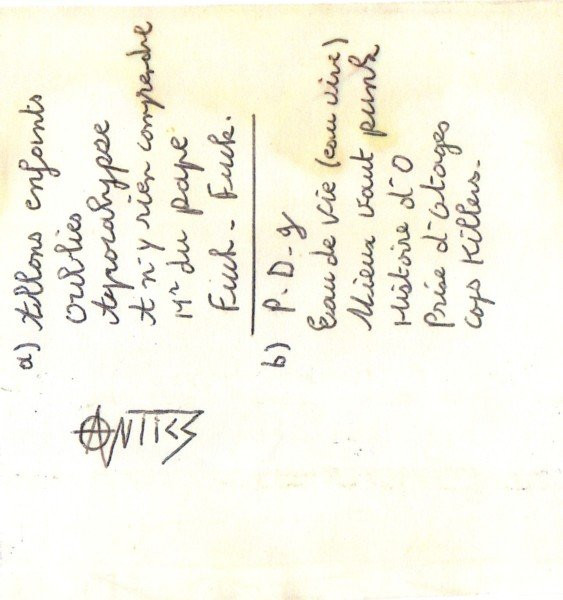 ANTICS
a) Allons enfants
Oubliés
Apocalypse
A n'y rien comprendre
Mr du pape
Fuck - Fuck.
b) P.D-g
Eau de vie (eau vive)
Mieux vaut punk
Histoire d'O
Prise d'otages
Cops Killers.